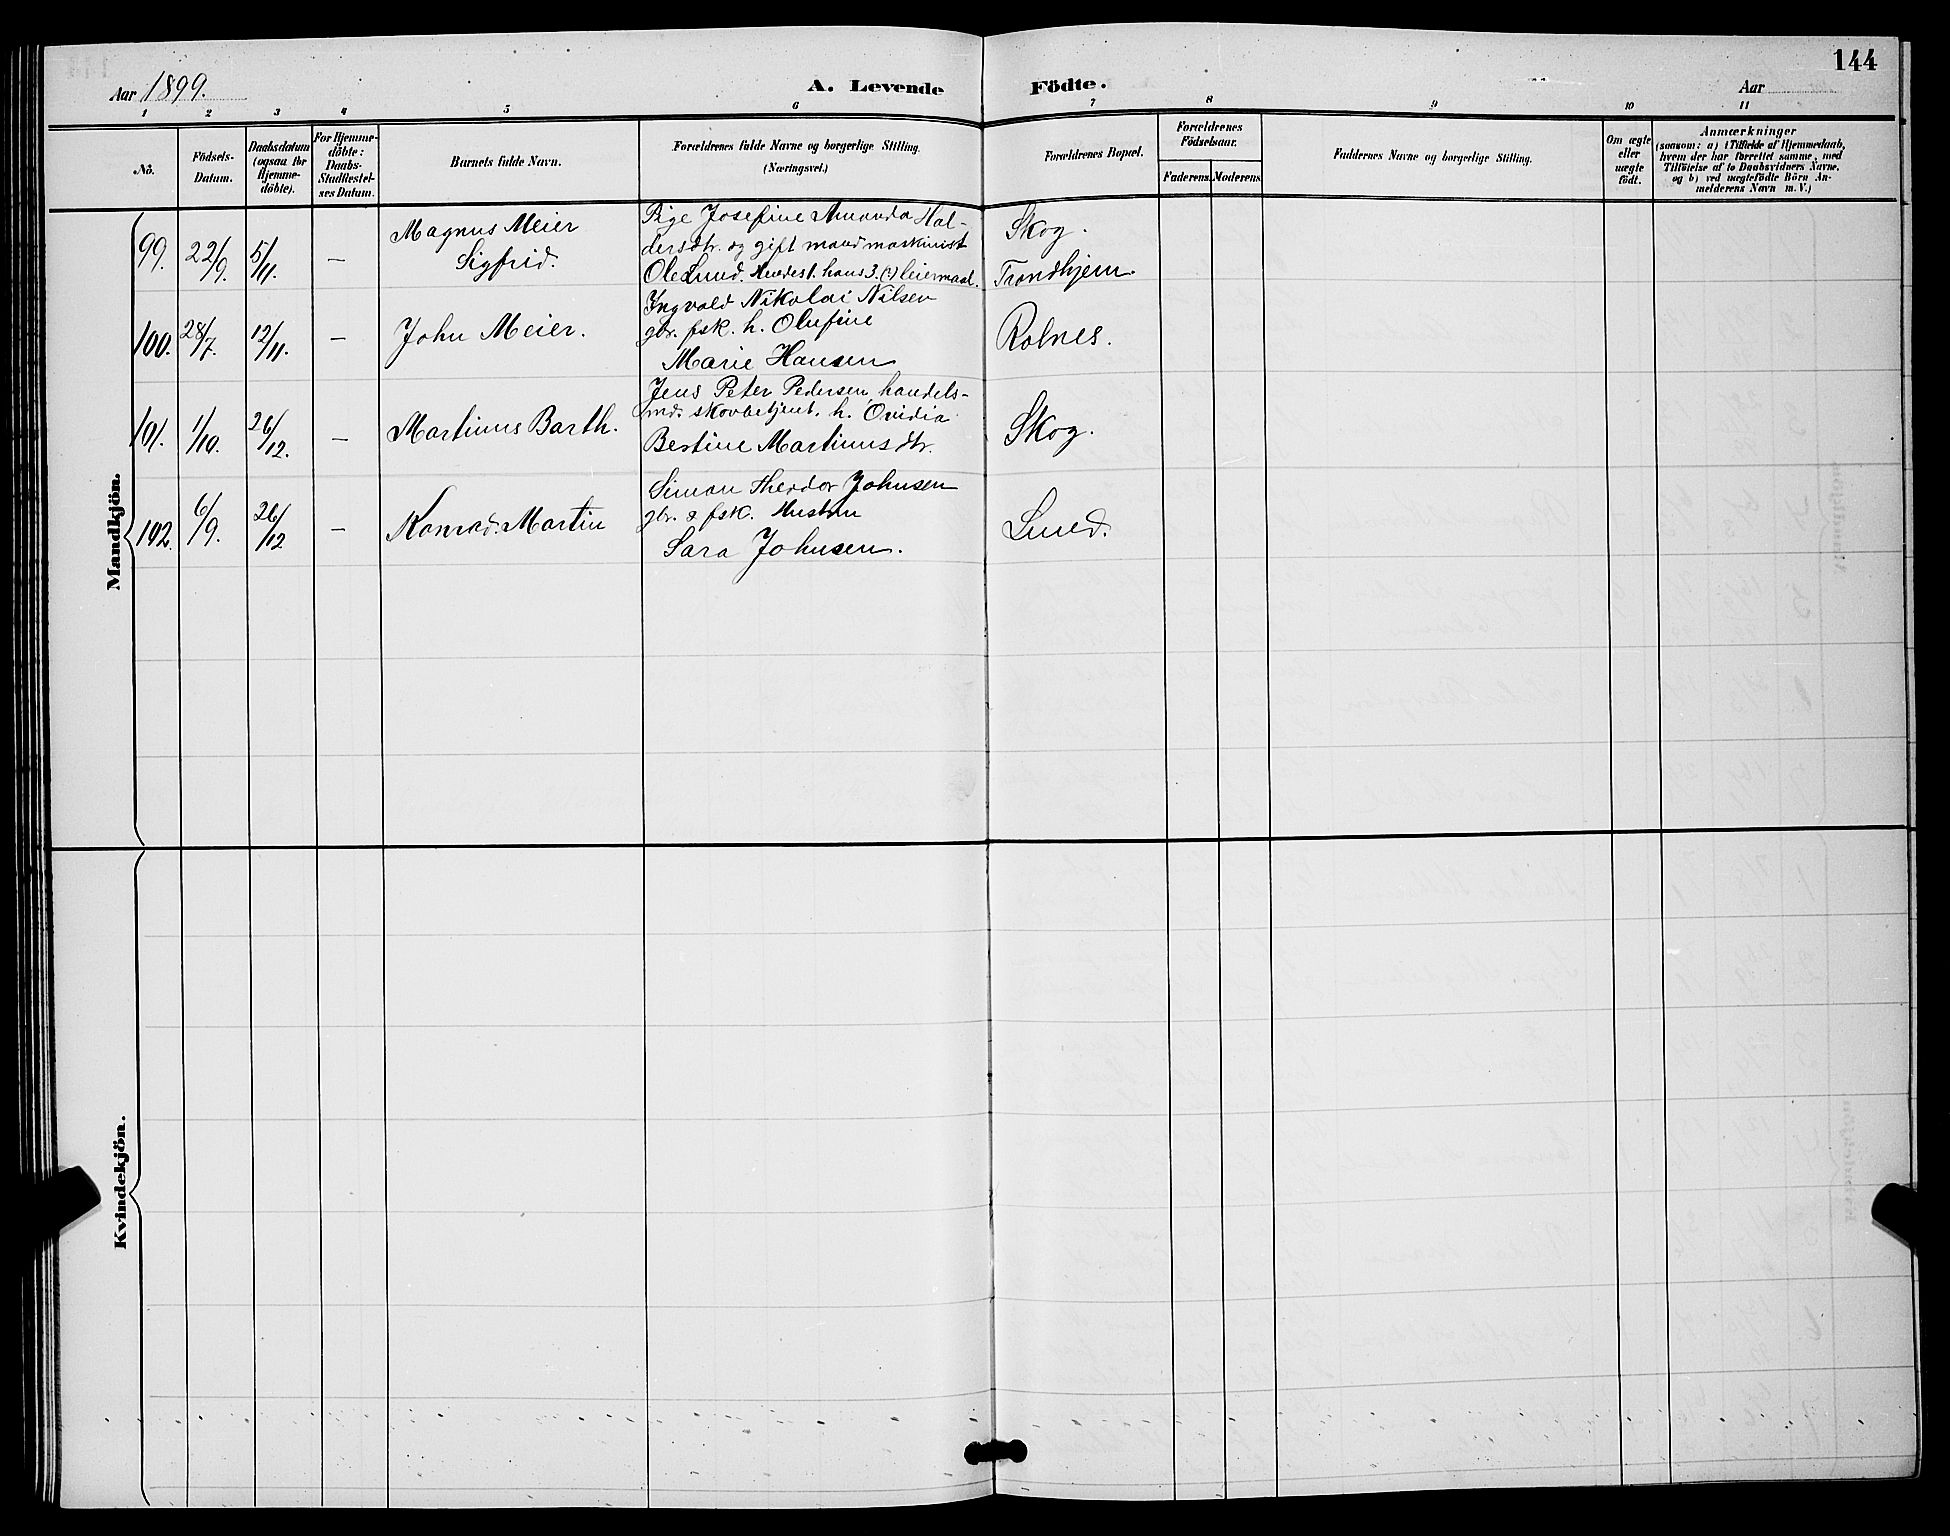 144
Aar 1899.
A. Levende Födte.
Aar
1 2 3 4 5 6 7 8 9 10 11
No.
Födsels-
Datum.
Daabsdatum
(ogsaa for
Hjemme-
döbte).
For Hjemme-
döbte:
Daabs-
Stadfæstel-
ses Datum.
Barnets fulde Navn.
Forældrenes fulde Navne og borgerlige Stilling.
(Næringsvei.)
Forældrenes Bopæl.
Forældrenes
Födselsaar.
Faderens. Moderens.
Faddernes Navne og borgerlige Stilling.
Om ægte
eller
uægte
født.
Anmærkninger
(saasom: a) i Tilfælde af Hjemmedaab,
hvem der har forrettet samme, med
Tilföielse af to Daabsvidners Navne,
og b) ved uægtefödte Börn An-
melderens Navn m. V.)
Mandkjön.
99. 22/9. 5/11. —
Magnus Meier
Sigfrid.
Pige Josefine Amanda Hal-
dersdtr. og gift mand maskinist
Ole Lund. Hendes 1. hans 3. (?) leiermaal.
Skog.
Trondhjem.
100. 28/7. 12/11. — John Meier.
Ingvald Nikolai Nilsen
gbr. fsk. h. Olufine
Marie Hansen
Rolnes.
101. 1/10. 26/12. — Martinus Barth.
Jens Peter Pedersen, handels-
md. skovbetjent. h. Ovidia
Bertine Martinusdtr.
Skog.
102. 6/9. 26/12 — Konrad Martin
Simon Theodor Johnsen
gbr. & fsk. Hustru
Sara Johnsen.
Lund.
Kvindekjön.